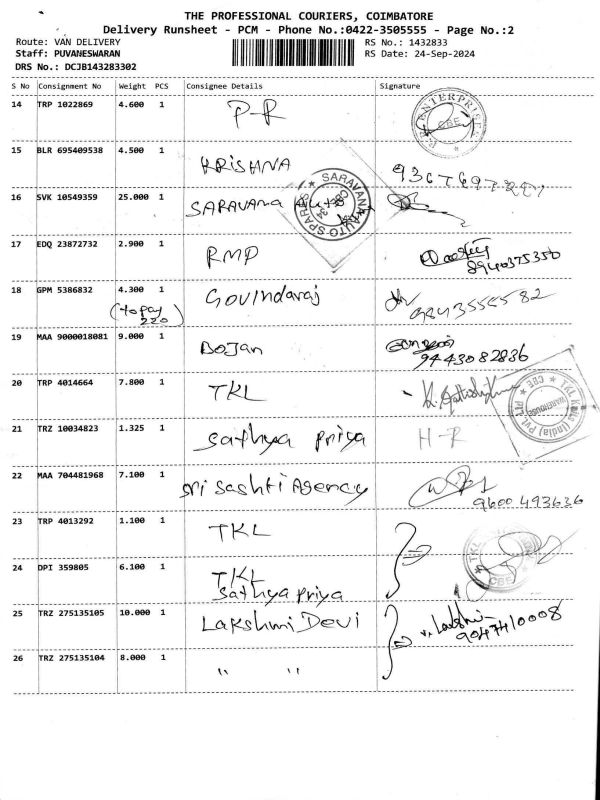 THE PROFESSIONAL COURIERS, COIMBATORE
Delivery Runsheet - PCM - Phone No.:0422-3505555 - Page No.:2
Route: VAN DELIVERY RS No.: 1432833
Staff: PUVANESWARAN RS Date: 24-Sep-2024
DRS No.: DCJB143283302
S No Consignment No Weight PCS Consignee Details Signature
14 TRP 1022869 4.600 1 P-R
ENTERPRISES CBE
15 BLR 695409538 4.500 1 KRISHNA
16 SVK 10549359 25.000 1 SARAVANA Auto
SARAVANA AUTO SPARES
17 EDQ 23872732 2.900 1 RMP
8940375350
18 GPM 5386832 4.300 1 Govindaraj 9843555582
(to pay 220)
19 MAA 9000018081 9.000 1 Dojan
9443082836
20 TRP 4014664 7.800 1 TKL
TKL (India) Pvt. CBE WAREHOUSE
21 TRZ 10034823 1.325 1 Sathya Priya H-R
22 MAA 704481968 7.100 1 Sri Sashti Agency
9600493636
23 TRP 4013292 1.100 1 TKL
TKL CBE
24 DPI 359805 6.100 1 TKL
Sathya Priya
25 TRZ 275135105 10.000 1 Lakshmi Devi
9047410008
26 TRZ 275135104 8.000 1 " "